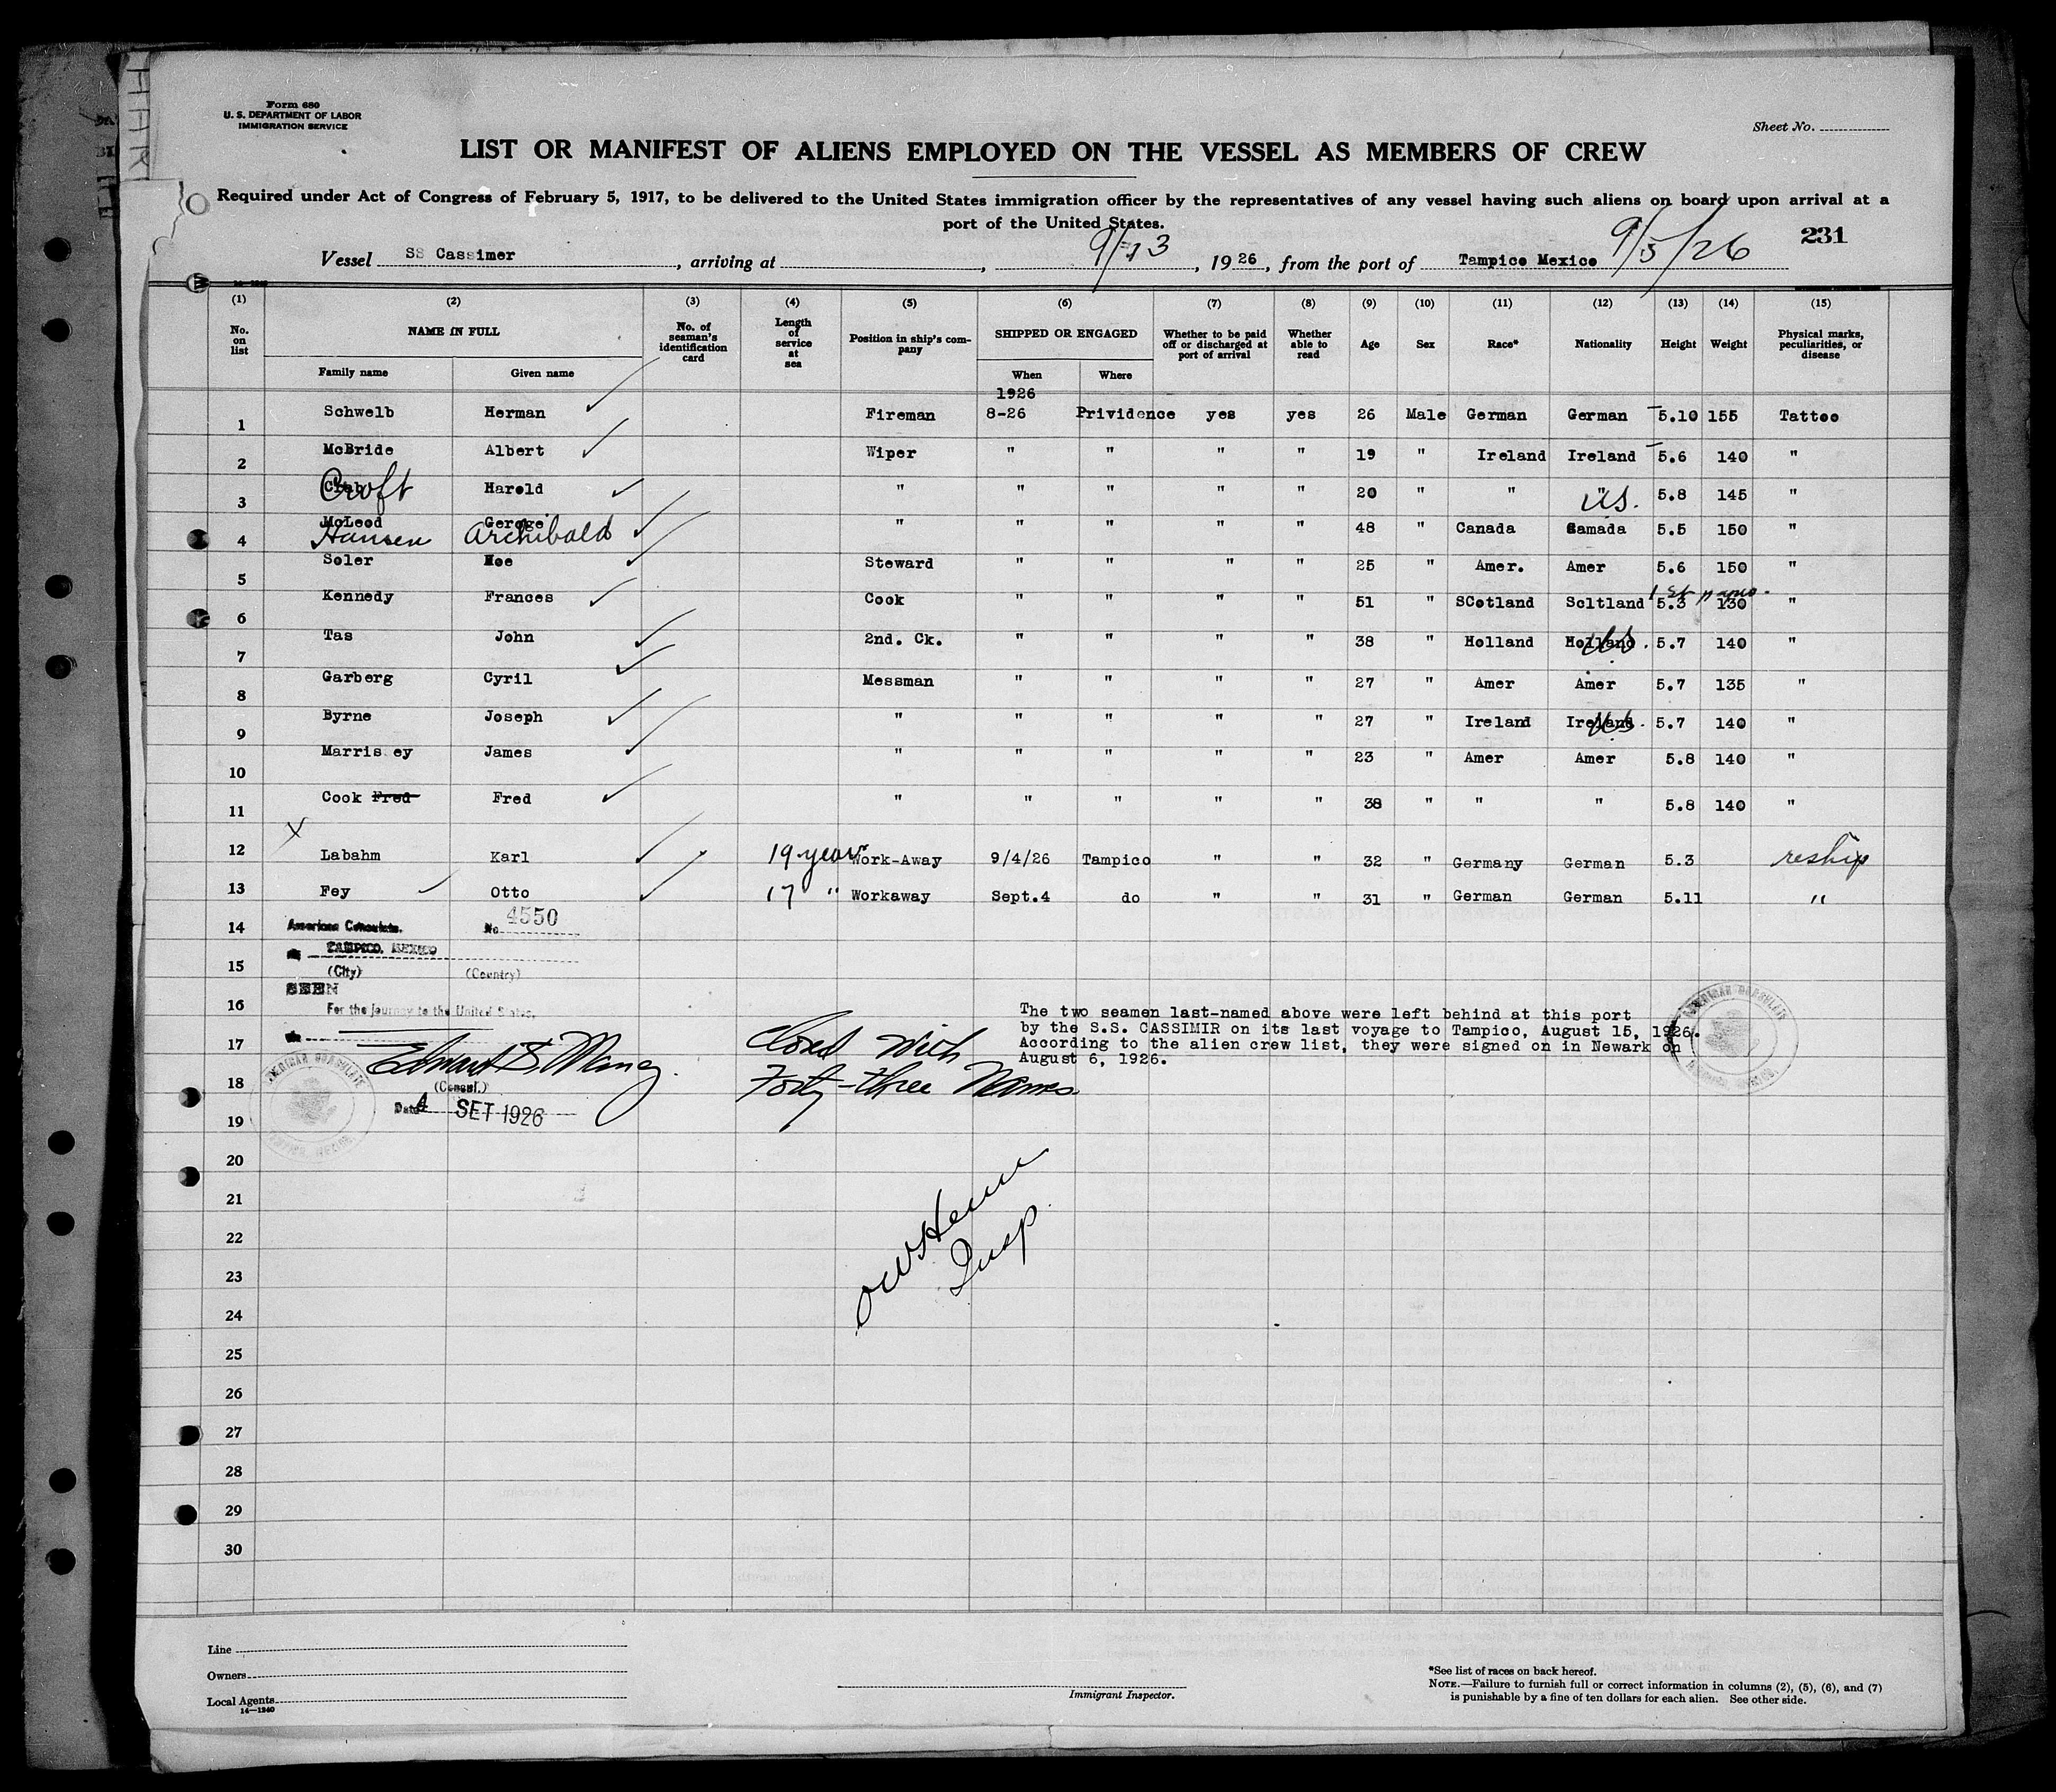 Form 680
U. S. DEPARTMENT OF LABOR
IMMIGRATION SERVICE
Sheet No.
LIST OR MANIFEST OF ALIENS EMPLOYED ON THE VESSEL AS MEMBERS OF CREW
Required under Act of Congress of February 5, 1917, to be delivered to the United States immigration officer by the representatives of any vessel having such aliens on board upon arrival at a
port of the United States.
231
Vessel SS Cassimer , arriving at , 9/13 , 19 26 , from the port of Tampico Mexico 9/5/26
(1) (2) (3) (4) (5) (6) (7) (8) (9) (10) (11) (12) (13) (14) (15)
No. on list NAME IN FULL No. of seaman's identification card Length of service at sea Position in ship's company SHIPPED OR ENGAGED Whether to be paid off or discharged at port of arrival Whether able to read Age Sex Race* Nationality Height Weight Physical marks, peculiarities, or disease
Family name Given name When Where
1926
1 Schwelb Herman Fireman 8-26 Prividence yes yes 26 Male German German 5.10 155 Tattoo
2 McBride Albert Wiper " " " " 19 " Ireland Ireland 5.6 140 "
3 Croft Harold " " " " " 20 " " " U.S. 5.8 145 "
4 McLeod Geroge " " " " " 48 " Canada Camada 5.5 150 "
Hansen Archibald
5 Soler Moe Steward " " " " 25 " Amer. Amer 5.6 150 "
6 Kennedy Frances Cook " " " " 51 " SCotland Scltland 5.3 130 "
1st
7 Tas John 2nd. Ck. " " " " 38 " Holland Holland US. 5.7 140 "
8 Garberg Cyril Messman " " " " 27 " Amer Amer 5.7 135 "
9 Byrne Joseph " " " " " 27 " Ireland Ireland US. 5.7 140 "
10 Marris ey James " " " " " 23 " Amer Amer 5.8 140 "
11 Cook Fred Fred " " " " " 38 " " " 5.8 140 "
X
12 Labahm Karl 19 years Work-Away 9/4/26 Tampico " " 32 " Germany German 5.3 reship
13 Fey Otto 17 " Workaway Sept.4 do " " 31 " German German 5.11 "
14 American Consulate. No. 4550
TAMPICO, MEXICO
15 (City) (Country)
SEEN
16 For the journey to the United States,
The two seamen last-named above were left behind at this port
by the S.S. CASSIMIR on its last voyage to Tampico, August 15, 1926.
According to the alien crew list, they were signed on in Newark on
August 6, 1926.
17 Closed with
18 Forty-three Names.
(Consul.)
Date 4 SET 1926
AMERICAN CONSULATE
AMERICAN CONSULATE
19
20
21
22
Insp.
23
24
25
26
27
28
29
30
Line
Owners
Local Agents
14—1240
Immigrant Inspector.
*See list of races on back hereof.
NOTE.—Failure to furnish full or correct information in columns (2), (5), (6), and (7)
is punishable by a fine of ten dollars for each alien. See other side.